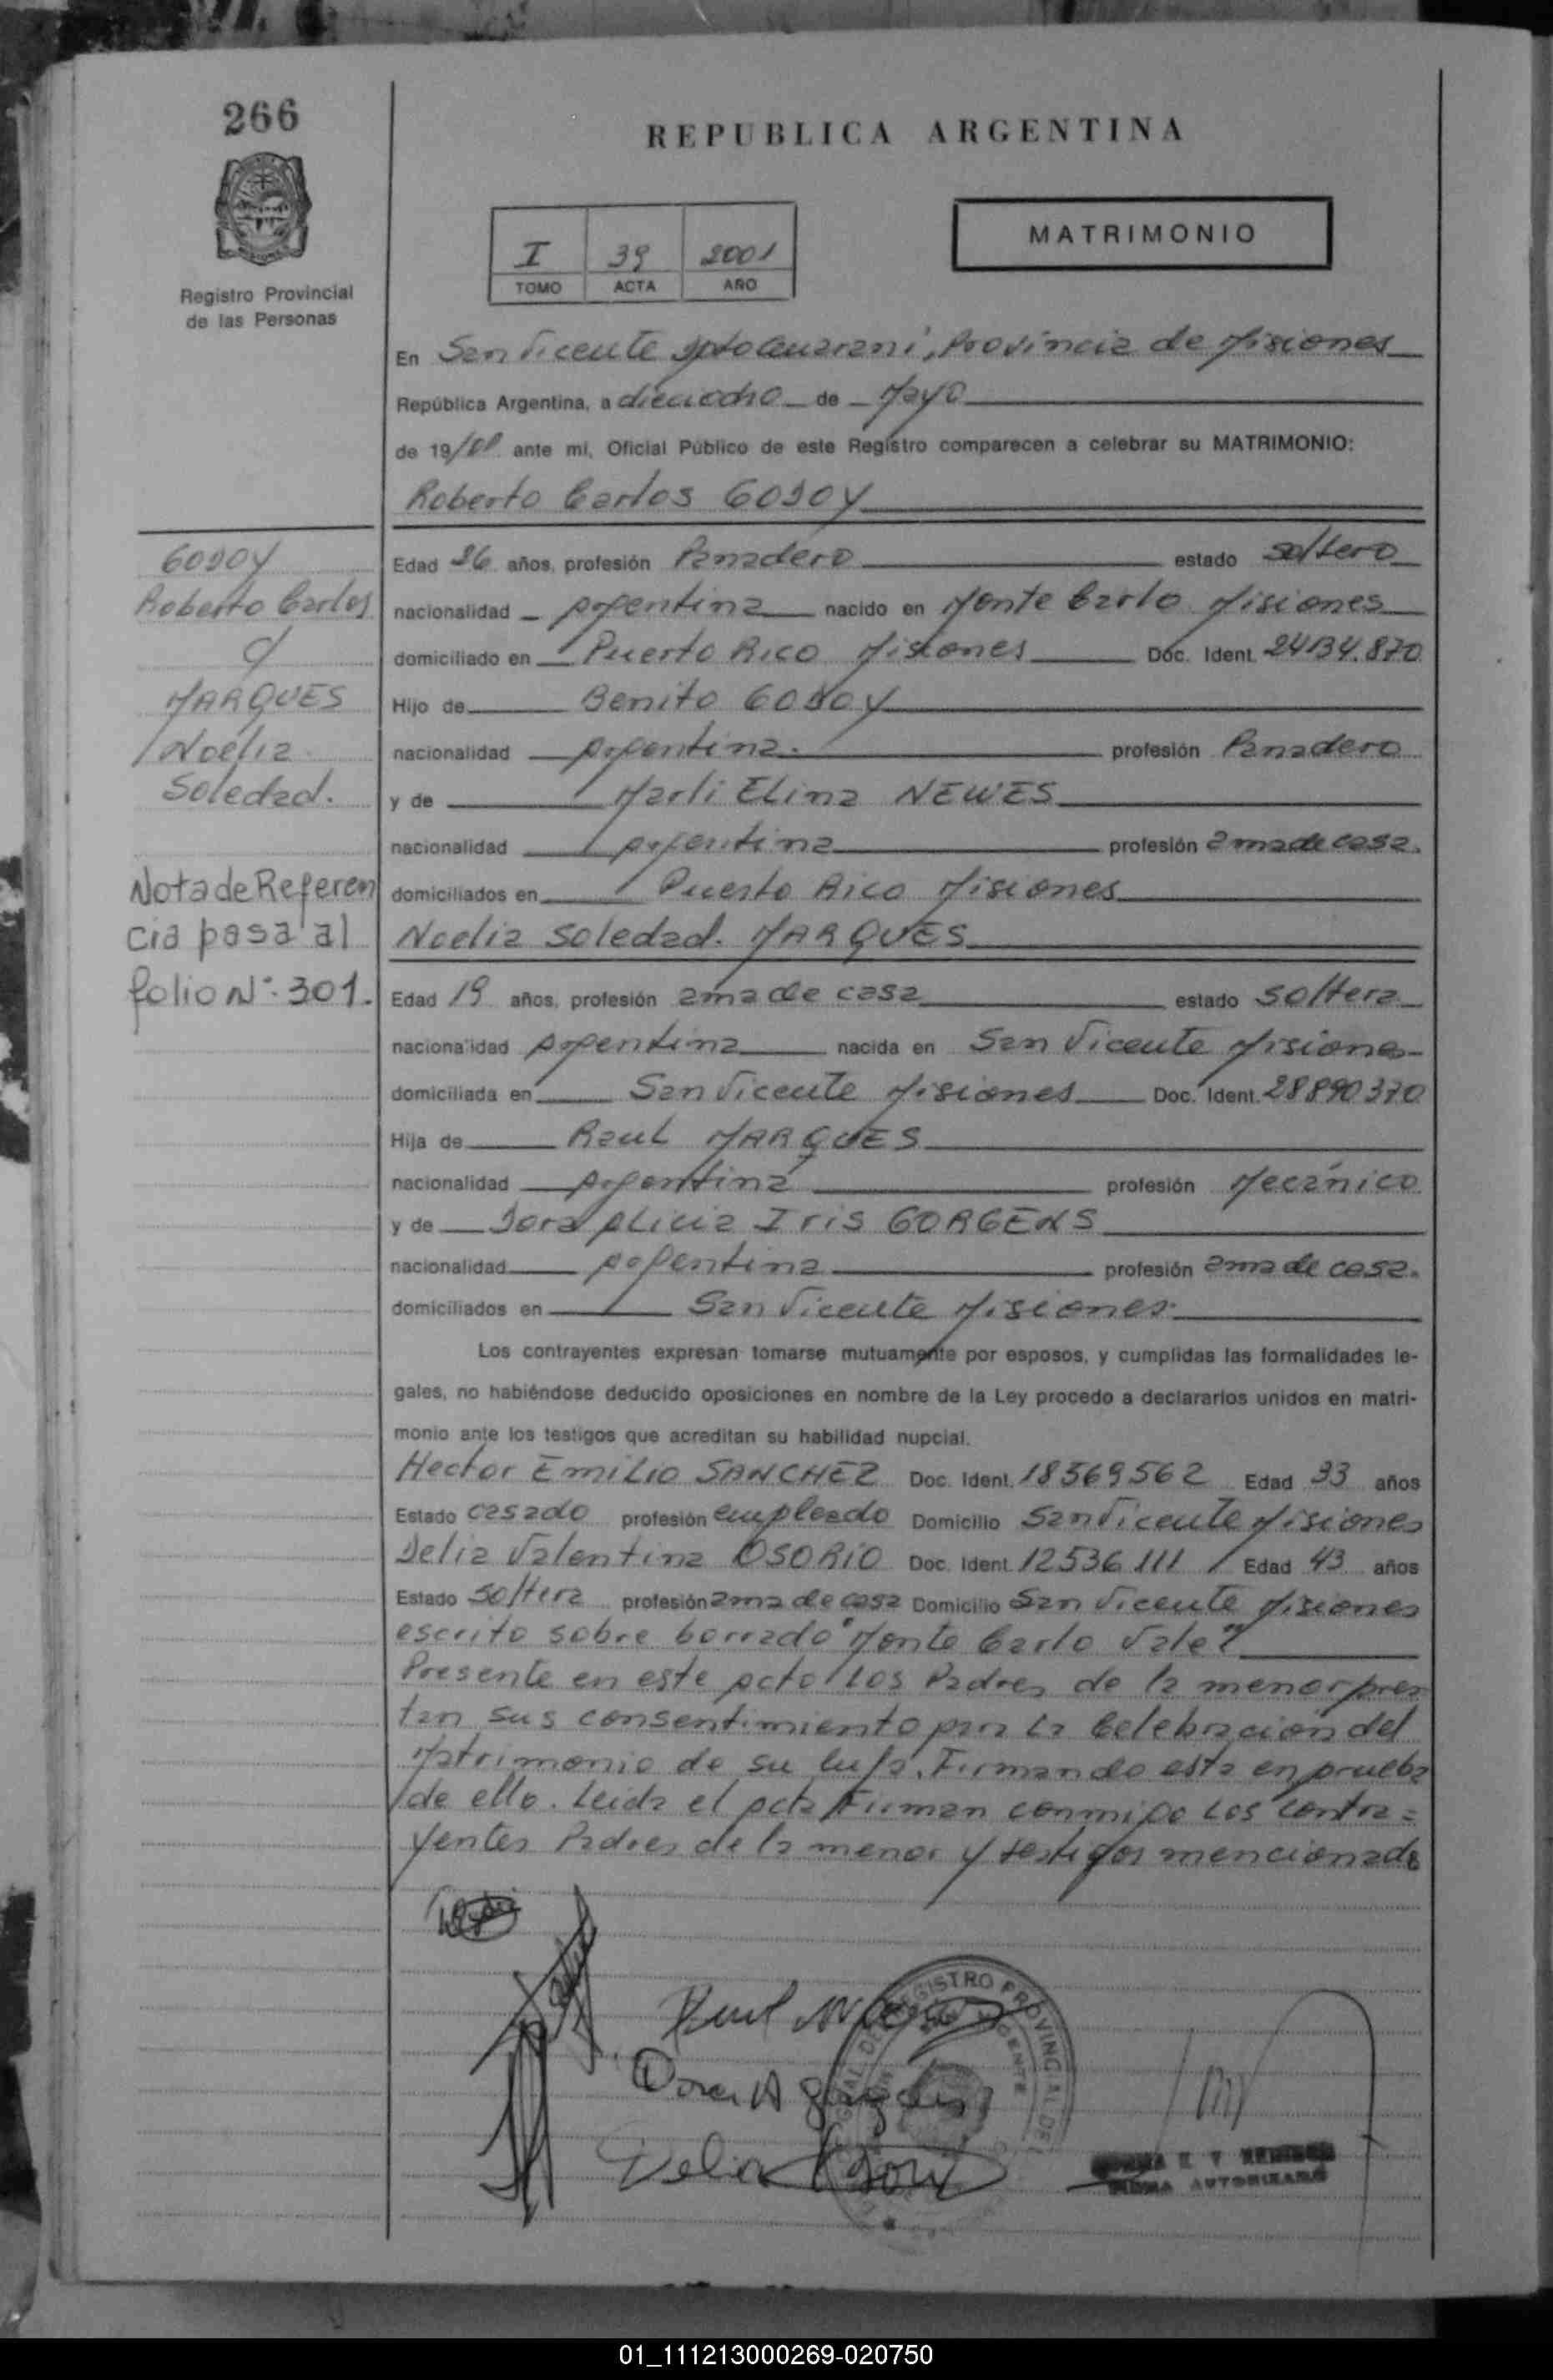 266
REPUBLICA ARGENTINA
I 39 2001
TOMO ACTA AÑO
MATRIMONIO
Registro Provincial
de las Personas
En San Vicente Dpto Guarani, Provincia de Misiones
República Argentina, a dieciocho de Mayo
de 19/01 ante mi, Oficial Público de este Registro comparecen a celebrar su MATRIMONIO:
Roberto Carlos GODOY
GODOY
Roberto Carlos
c/
MARQUES
Noelia
Soledad.
Nota de Referen
cia pasa al
folio N°. 301.
Edad 26 años, profesión Panadero estado soltero
nacionalidad Argentina nacido en Monte Carlo Misiones
domiciliado en Puerto Rico Misiones Doc. Ident. 24134.870
Hijo de Benito GODOY
nacionalidad Argentina. profesión Panadero
y de Marli Elina NEWES
nacionalidad Argentina profesión ama de casa.
domiciliados en Puerto Rico Misiones
Noelia Soledad. MARQUES
Edad 19 años, profesión ama de casa estado soltera
nacionalidad Argentina nacida en San Vicente Misiones
domiciliada en San Vicente Misiones Doc. Ident. 28890370
Hija de Raul MARQUES
nacionalidad Argentina profesión Mecánico
y de Dora Alicia Iris GORGENS
nacionalidad Argentina profesión ama de casa.
domiciliados en San Vicente Misiones.
Los contrayentes expresan tomarse mutuamente por esposos, y cumplidas las formalidades le-
gales, no habiéndose deducido oposiciones en nombre de la Ley procedo a declararlos unidos en matri-
monio ante los testigos que acreditan su habilidad nupcial.
Hector Emilio SANCHEZ Doc. Ident. 18569562 Edad 33 años
Estado casado profesión empleado Domicilio San Vicente Misiones
Delia Valentina OSORIO Doc. Ident. 12536111 Edad 43 años
Estado soltera profesión ama de casa Domicilio San Vicente Misiones
escrito sobre borrado "Monte Carlo Vale"
Presente en este acto los Padres de la menor pres
tan sus consentimiento para la Celebracion del
Matrimonio de su hija. Firmando esta en prueba
de ello. Leida el acta Firman conmigo los contra=
yentes Padres de la menor y testigos mencionado
Raul
Dora A
Delia Osorio
REGISTRO PROVINCIAL DE
FIRMA AUTORIZADA
01_111213000269-020750